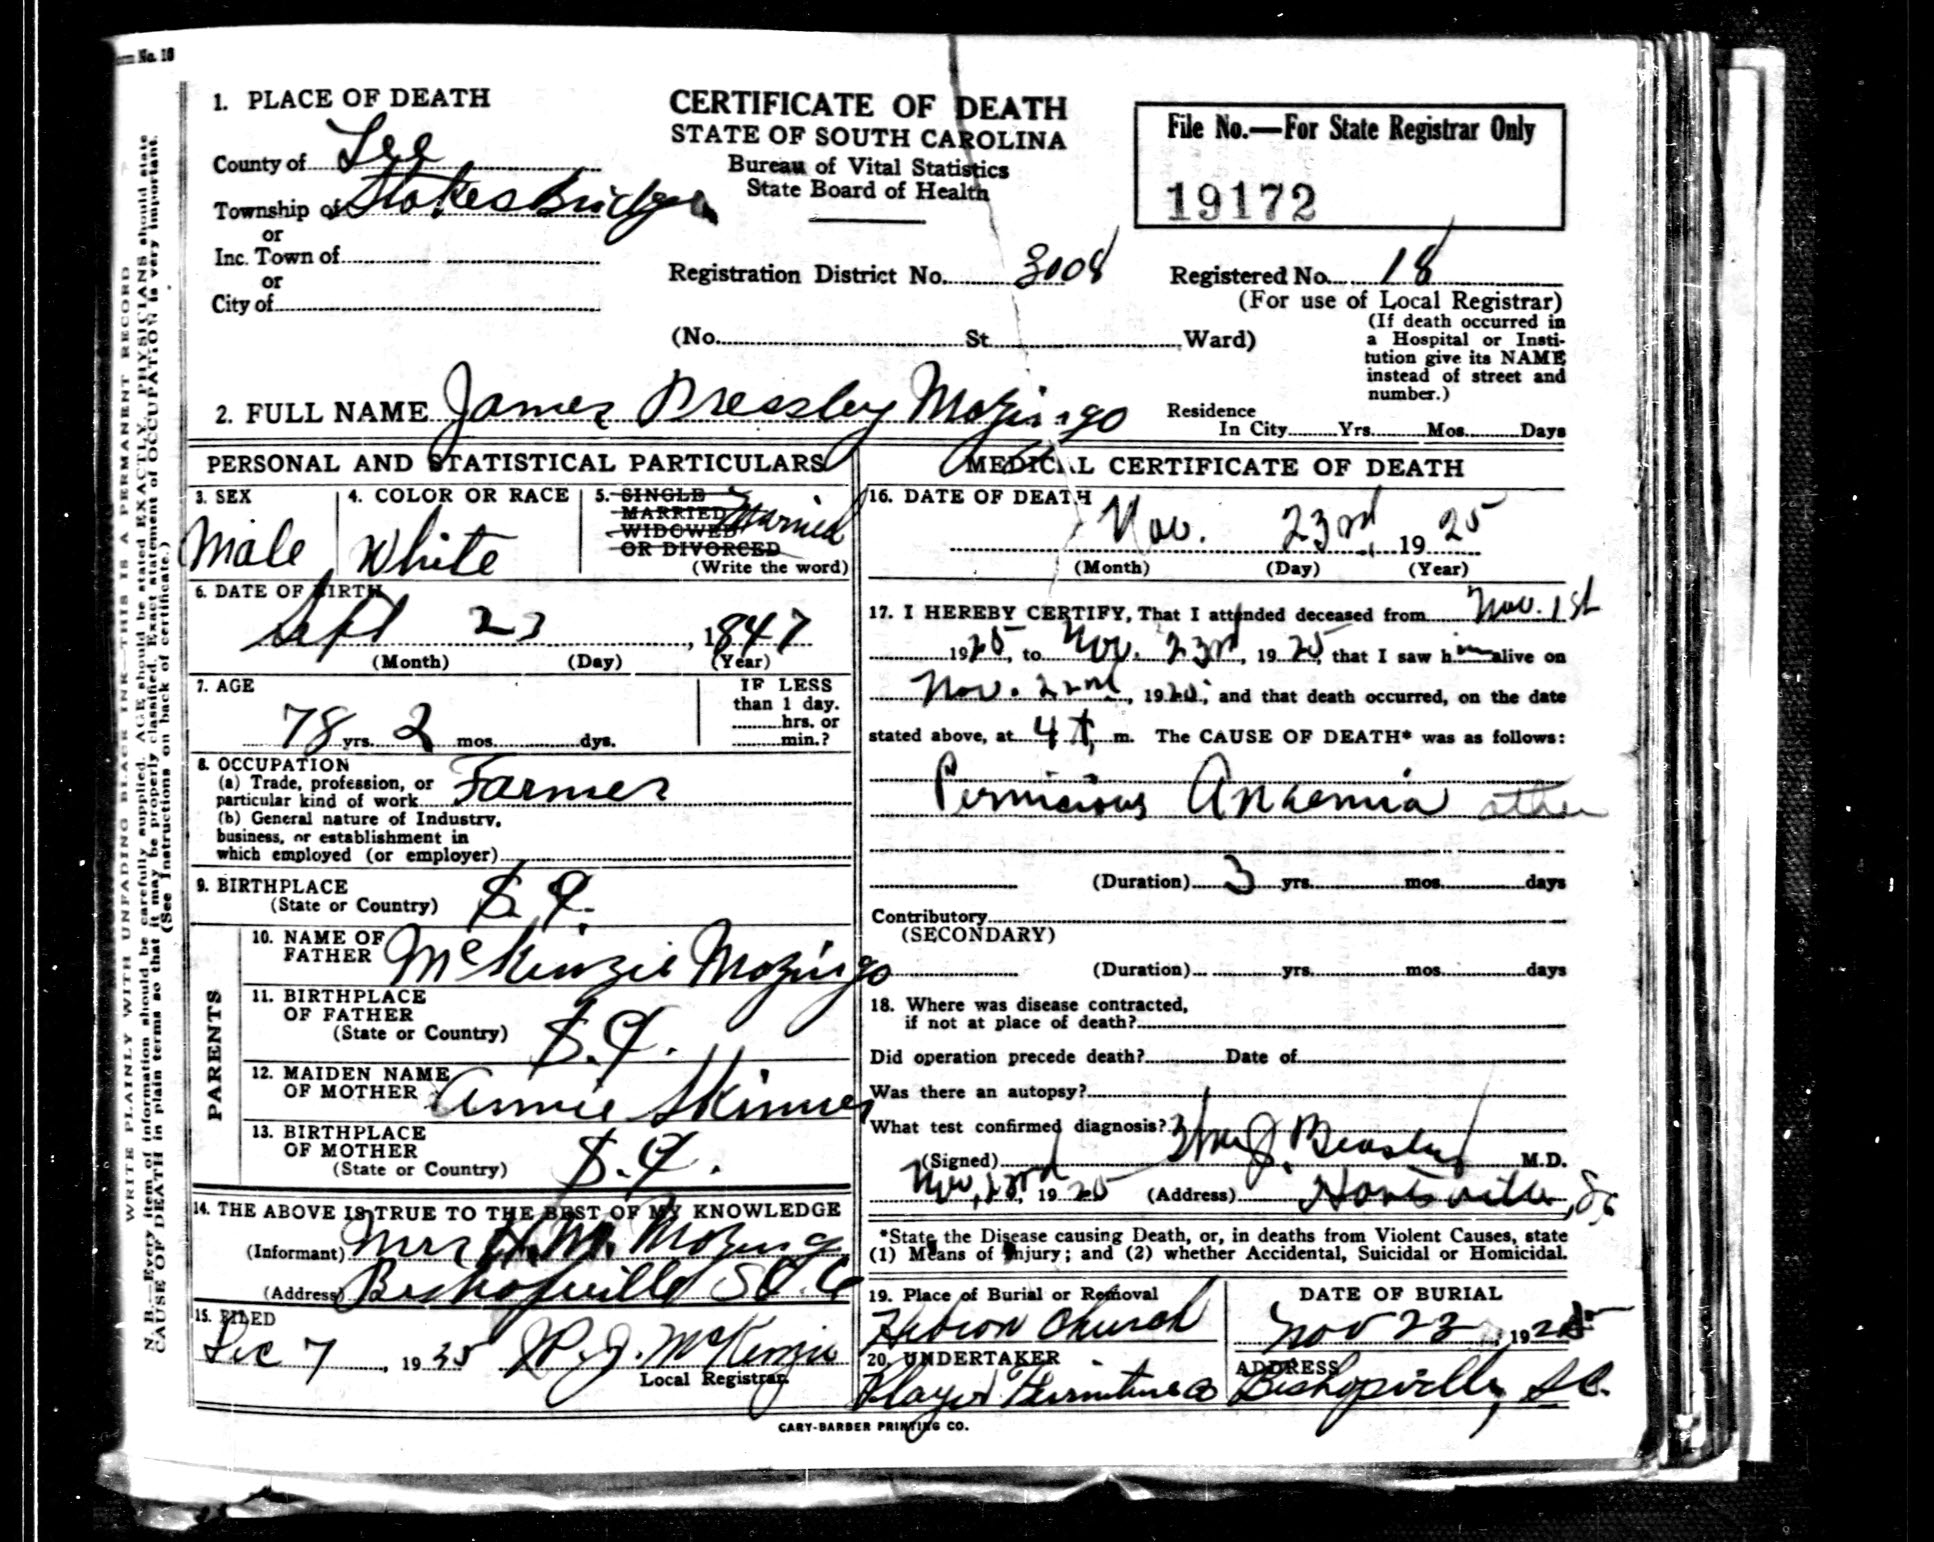 Form No. 18
1. PLACE OF DEATH
County of Lee
Township of Stokes Bridge
or
Inc. Town of
or
City of
CERTIFICATE OF DEATH
STATE OF SOUTH CAROLINA
Bureau of Vital Statistics
State Board of Health
File No.—For State Registrar Only
19172
Registration District No. 3008
Registered No. 18
(For use of Local Registrar)
(No. St. Ward)
(If death occurred in
a Hospital or Insti-
tution give its NAME
instead of street and
number.)
2. FULL NAME James Pressley Mozingo
Residence
In City Yrs. Mos. Days
PERSONAL AND STATISTICAL PARTICULARS
3. SEX
Male
4. COLOR OR RACE
White
5. SINGLE
MARRIED
WIDOWED
OR DIVORCED
Married
(Write the word)
6. DATE OF BIRTH
Sept 23, 1847
(Month) (Day) (Year)
7. AGE
78 yrs. 2 mos. dys.
IF LESS
than 1 day.
hrs. or
min.?
8. OCCUPATION
(a) Trade, profession, or
particular kind of work Farmer
(b) General nature of Industry,
business, or establishment in
which employed (or employer)
9. BIRTHPLACE
(State or Country) S.C.
PARENTS
10. NAME OF
FATHER McKinzie Mozingo
11. BIRTHPLACE
OF FATHER
(State or Country) S.C.
12. MAIDEN NAME
OF MOTHER Annie Skinner
13. BIRTHPLACE
OF MOTHER
(State or Country) S.C.
14. THE ABOVE IS TRUE TO THE BEST OF MY KNOWLEDGE
(Informant) Mrs H.M. Mozingo
(Address) Bishopville S.C.
15. FILED
Dec 7, 1925 McKenzie
Local Registrar
MEDICAL CERTIFICATE OF DEATH
16. DATE OF DEATH
Nov. 23rd, 1925
(Month) (Day) (Year)
17. I HEREBY CERTIFY, That I attended deceased from Nov. 1st
1925, to Nov. 23rd, 1925, that I saw him alive on
Nov. 22nd, 1925; and that death occurred, on the date
stated above, at 4 m. The CAUSE OF DEATH* was as follows:
Pernicious Anaemia other
(Duration) 3 yrs. mos. days
Contributory
(SECONDARY)
(Duration) yrs. mos. days
18. Where was disease contracted,
if not at place of death?
Did operation precede death? Date of
Was there an autopsy?
What test confirmed diagnosis?
(Signed) Beasley M.D.
Nov. 23rd 1925 (Address) Hartsville, S.C.
*State the Disease causing Death, or, in deaths from Violent Causes, state
(1) Means of Injury; and (2) whether Accidental, Suicidal or Homicidal.
19. Place of Burial or Removal
Hebron Church
DATE OF BURIAL
Nov 23, 1925
20. UNDERTAKER
Furniture Co
ADDRESS
Bishopville, S.C.
CARY-BARBER PRINTING CO.
WRITE PLAINLY WITH UNFADING BLACK INK—THIS IS A PERMANENT RECORD
N. B.—Every item of information should be carefully supplied. AGE should be stated EXACTLY. PHYSICIANS should state
CAUSE OF DEATH in plain terms so that it may be properly classified. Exact statement of OCCUPATION is very important.
(See Instructions on back of certificate.)